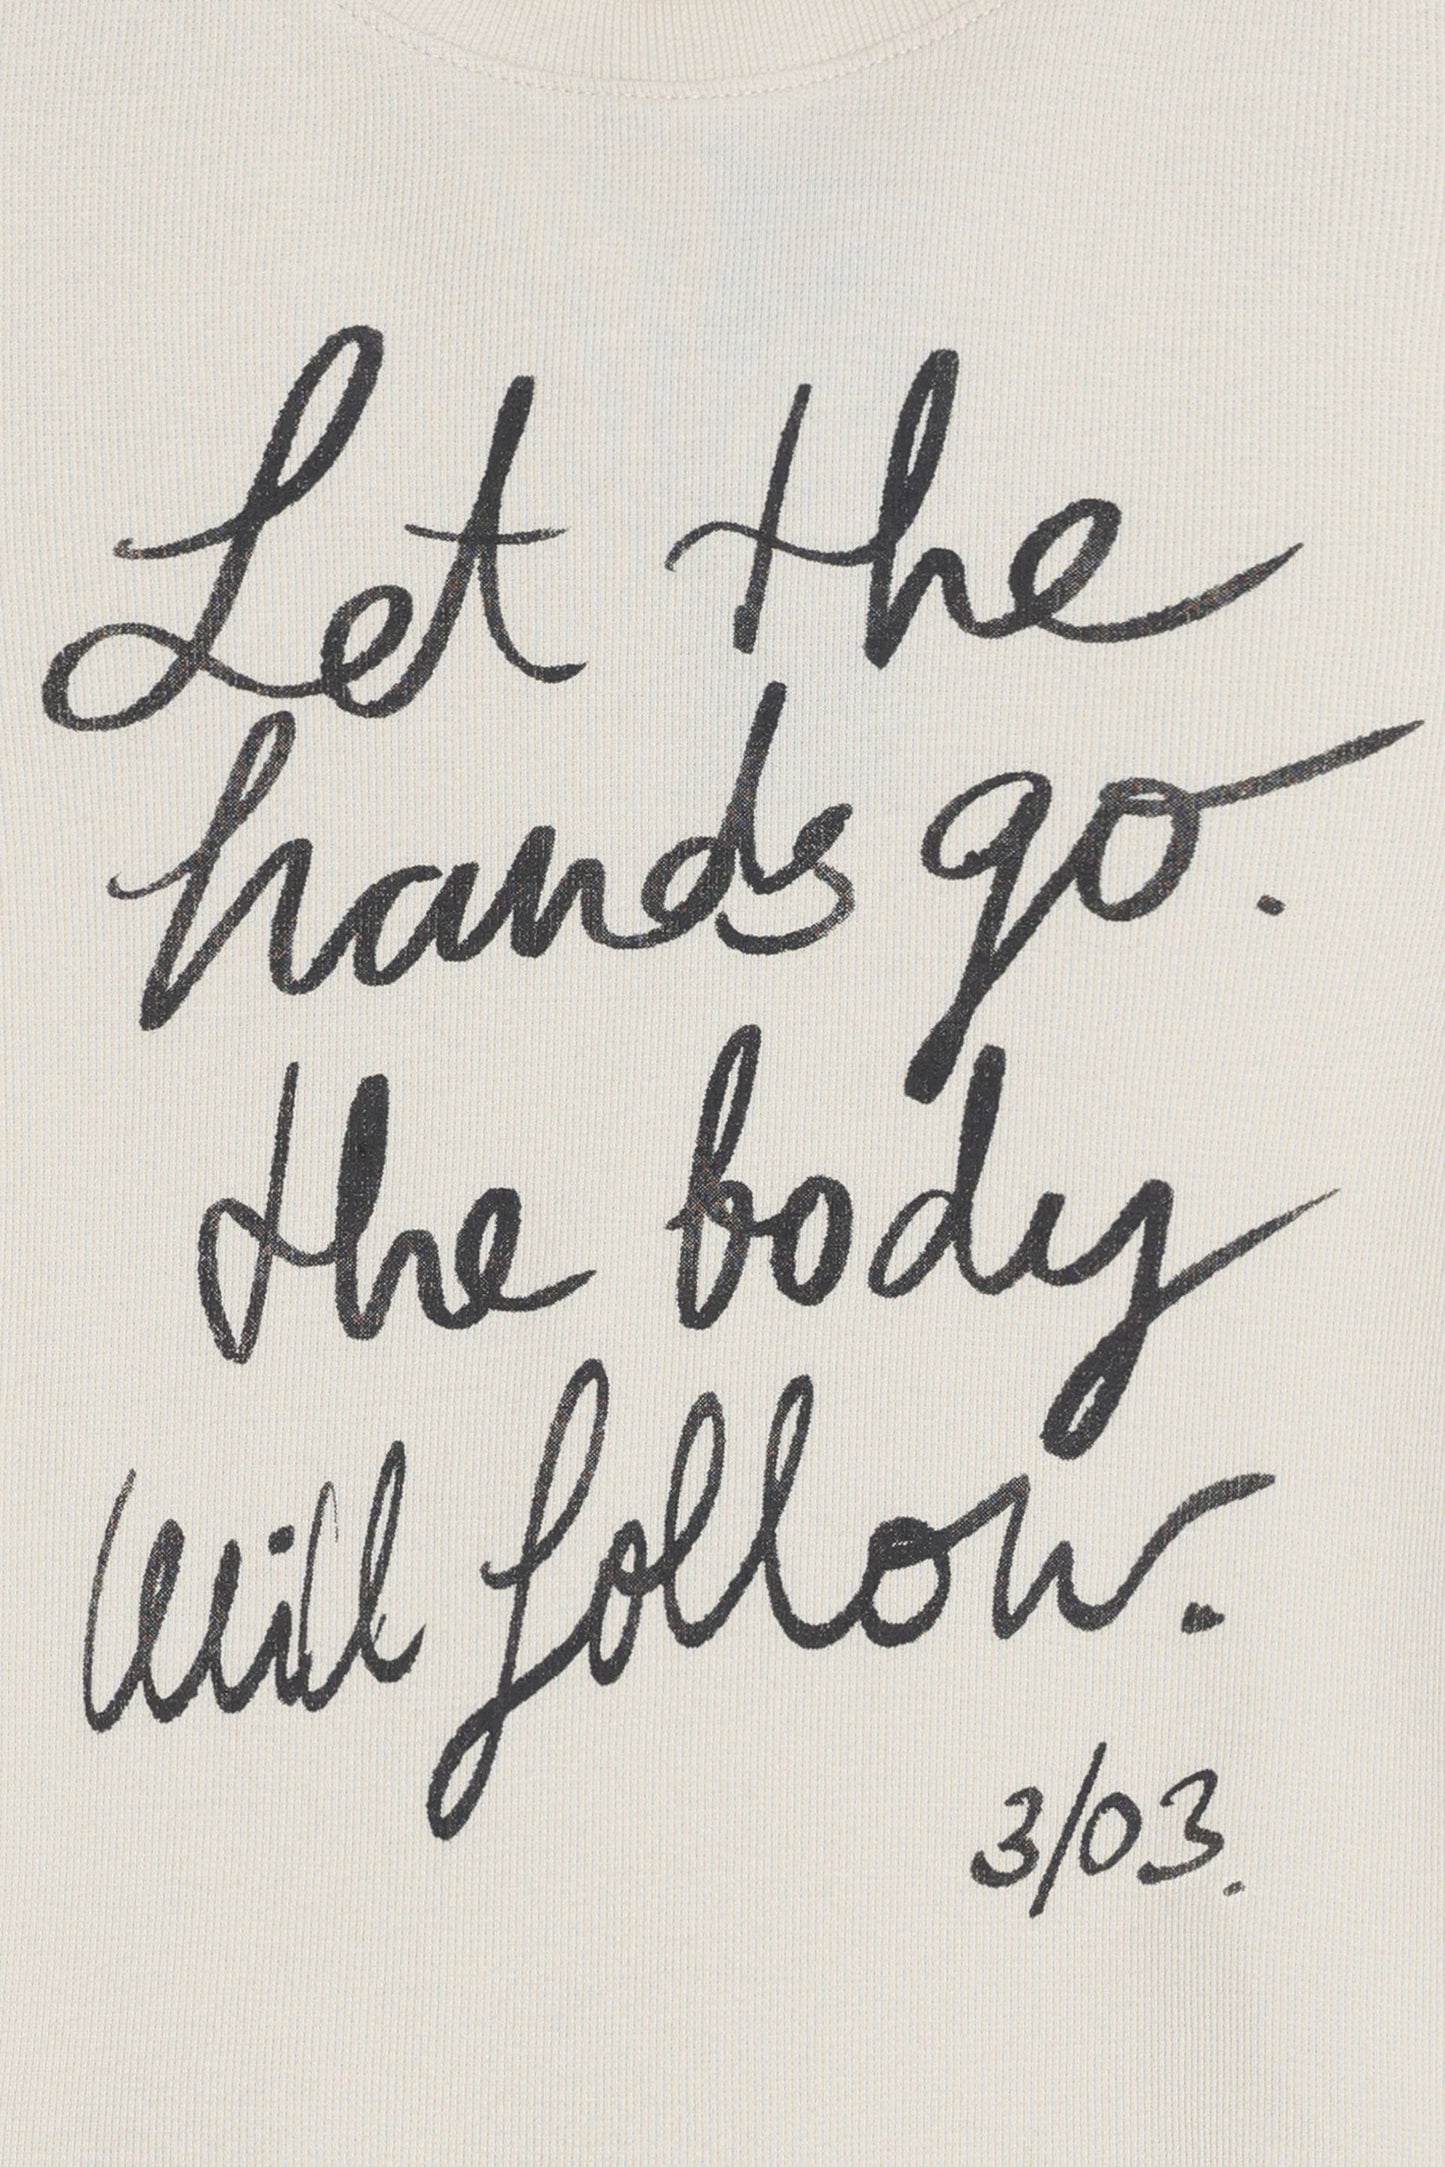 Let the
hands go.
the body
will follow.
3/03.